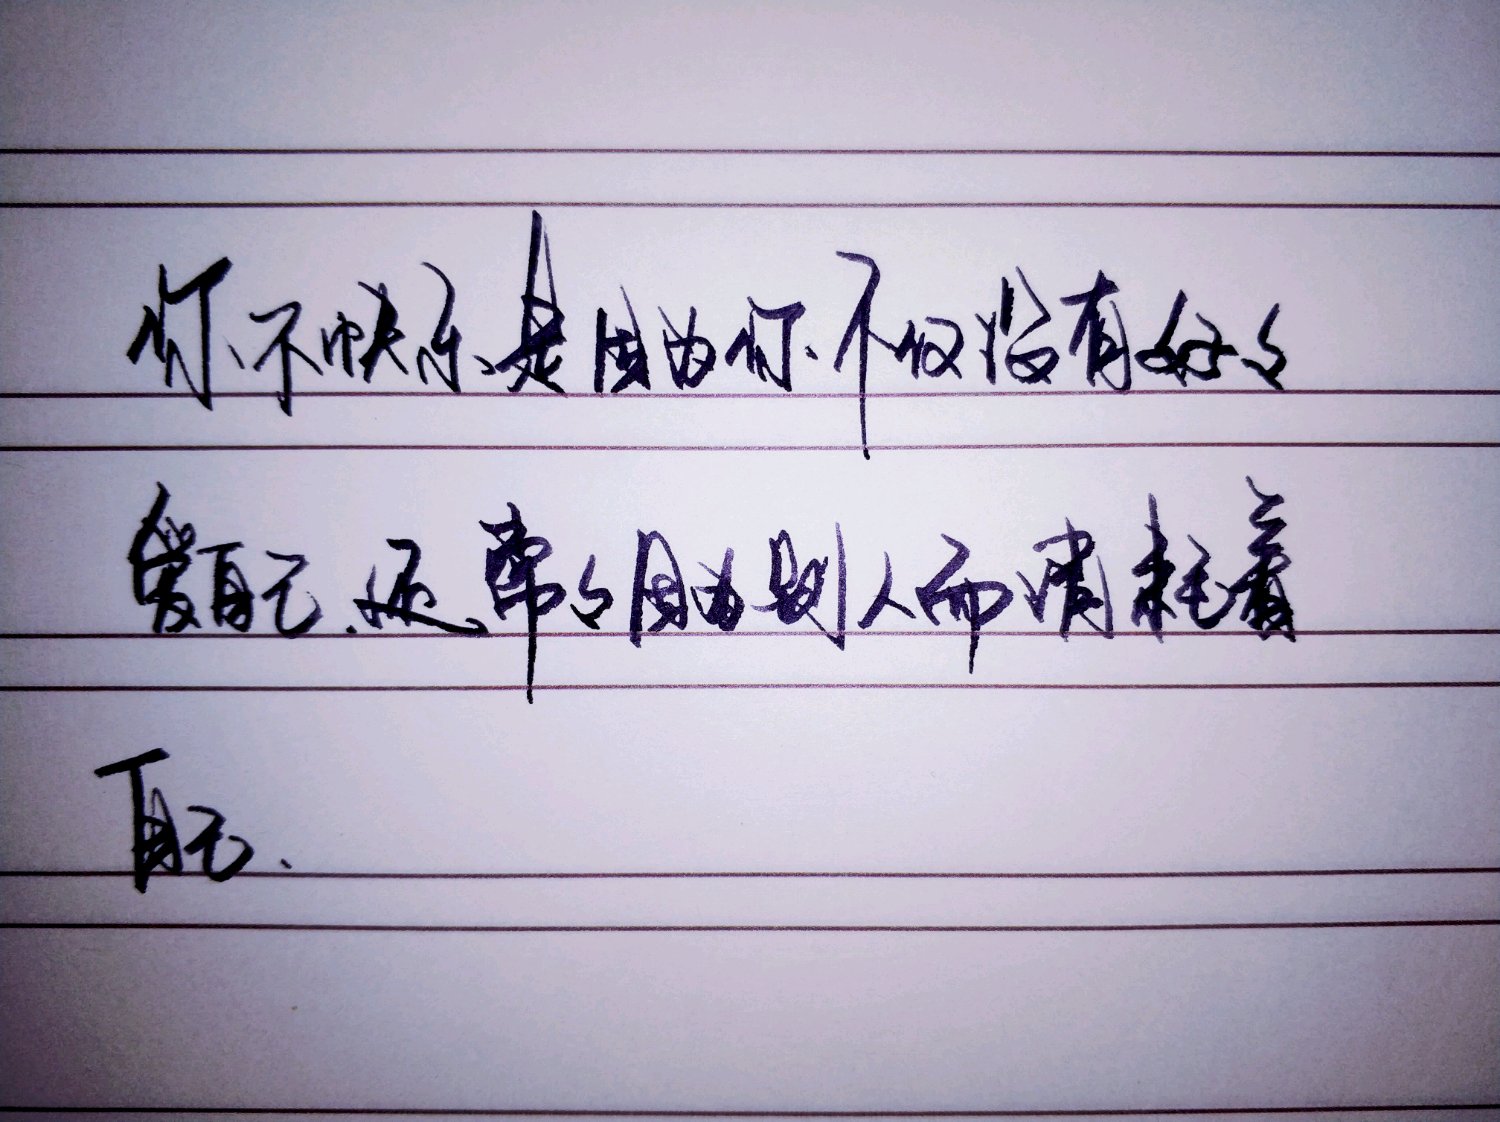 你不快乐是因为你不仅没有好々
爱自己.还常々因为别人而消耗着
自己.